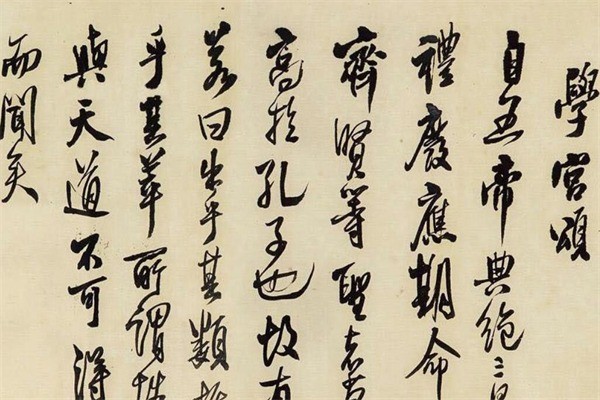 學官頌
自五帝典絕三皇
禮廢應期命
齊賢等聖者
高於孔子也故有
若曰出乎其類拔
乎其萃所謂性
與天道不可得
而聞矣